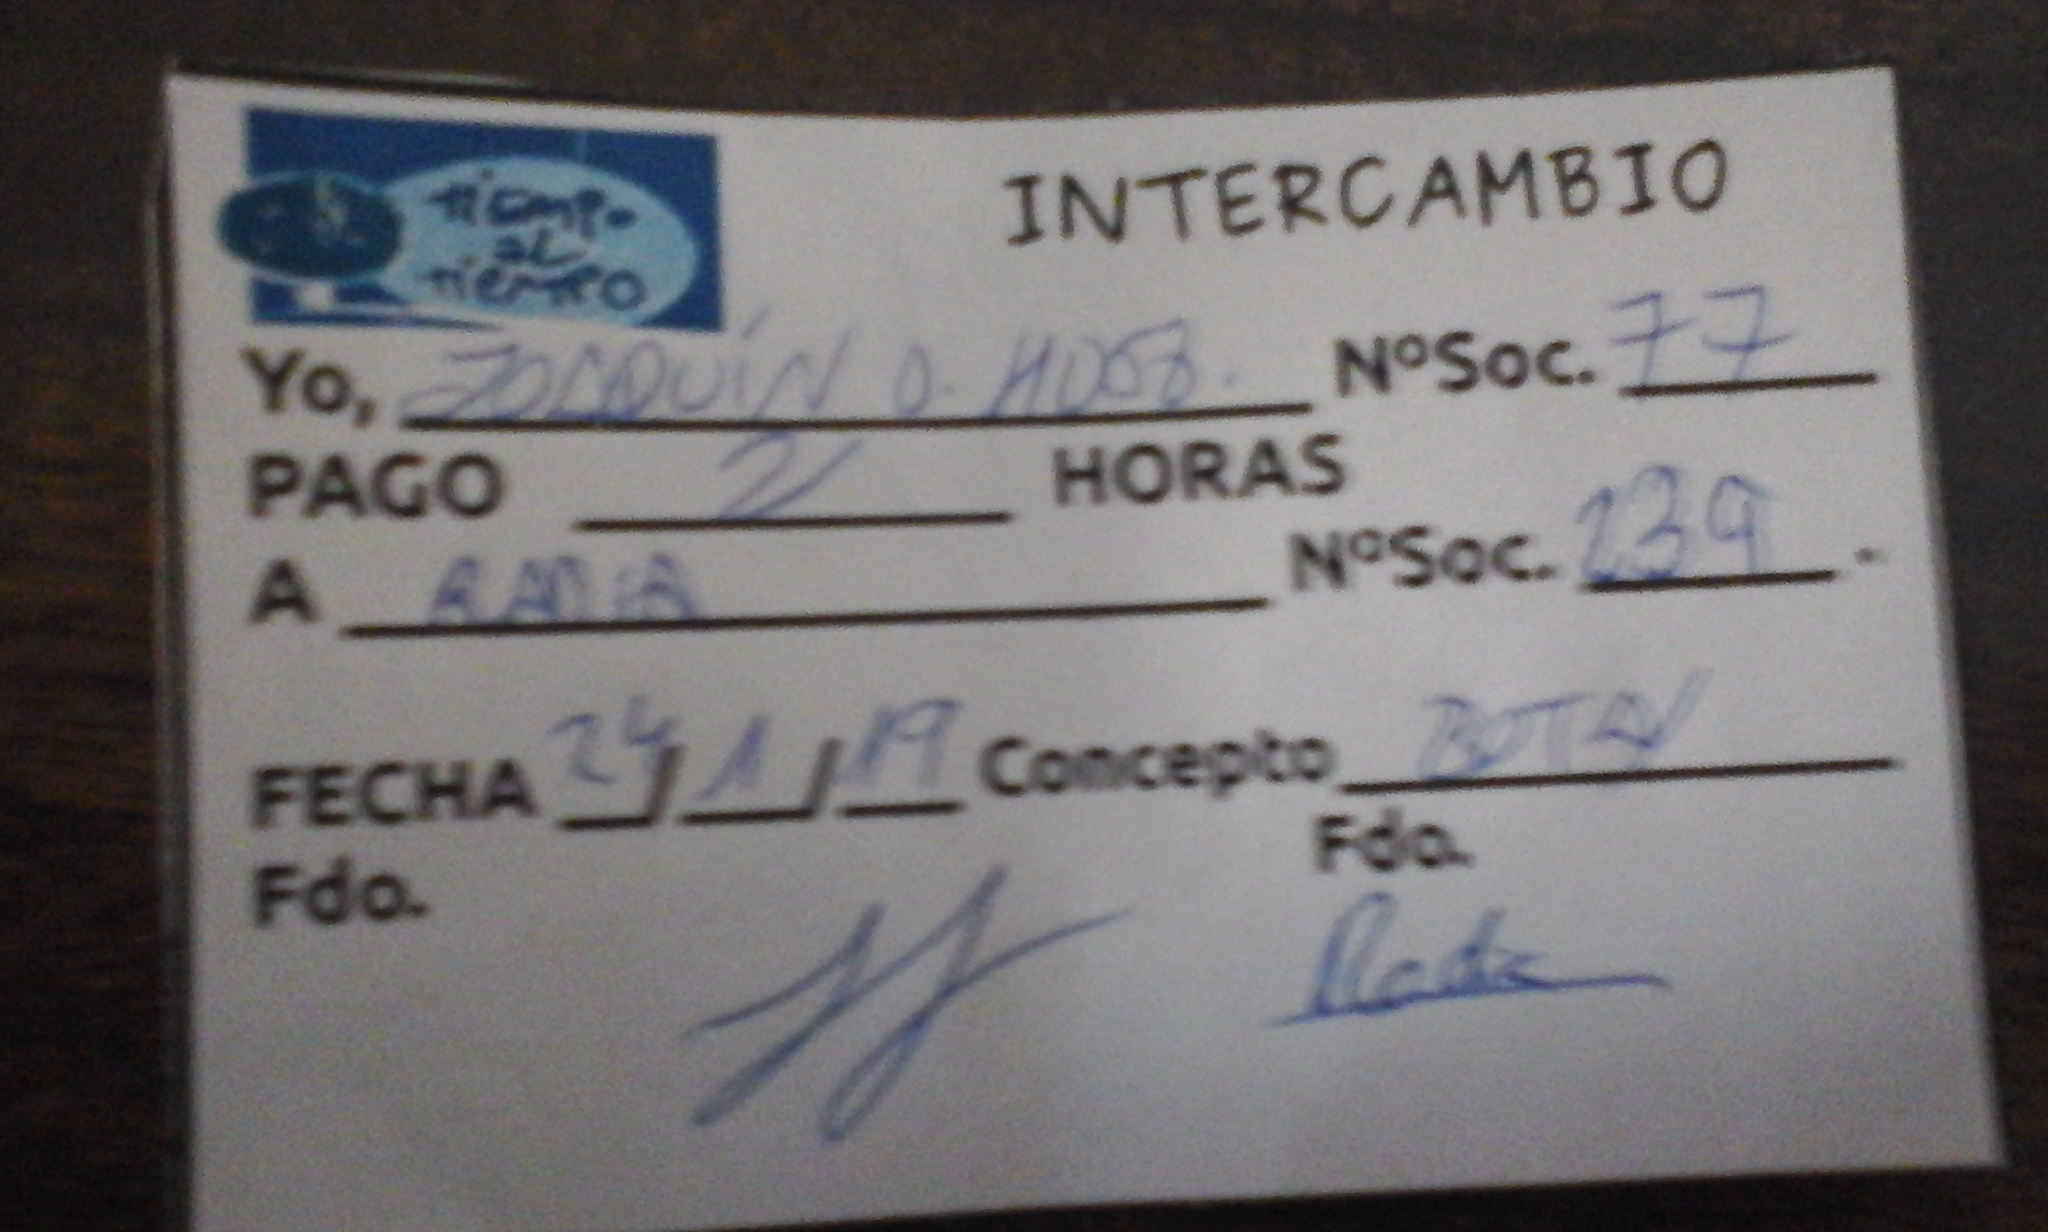 Tiempo
al
Tiempo
INTERCAMBIO
Yo, JOAQUÍN O. Nº Soc. 77
PAGO 2 HORAS
A RADIA Nº Soc. 239.
FECHA 24/1/19 Concepto
Fdo. Fdo.